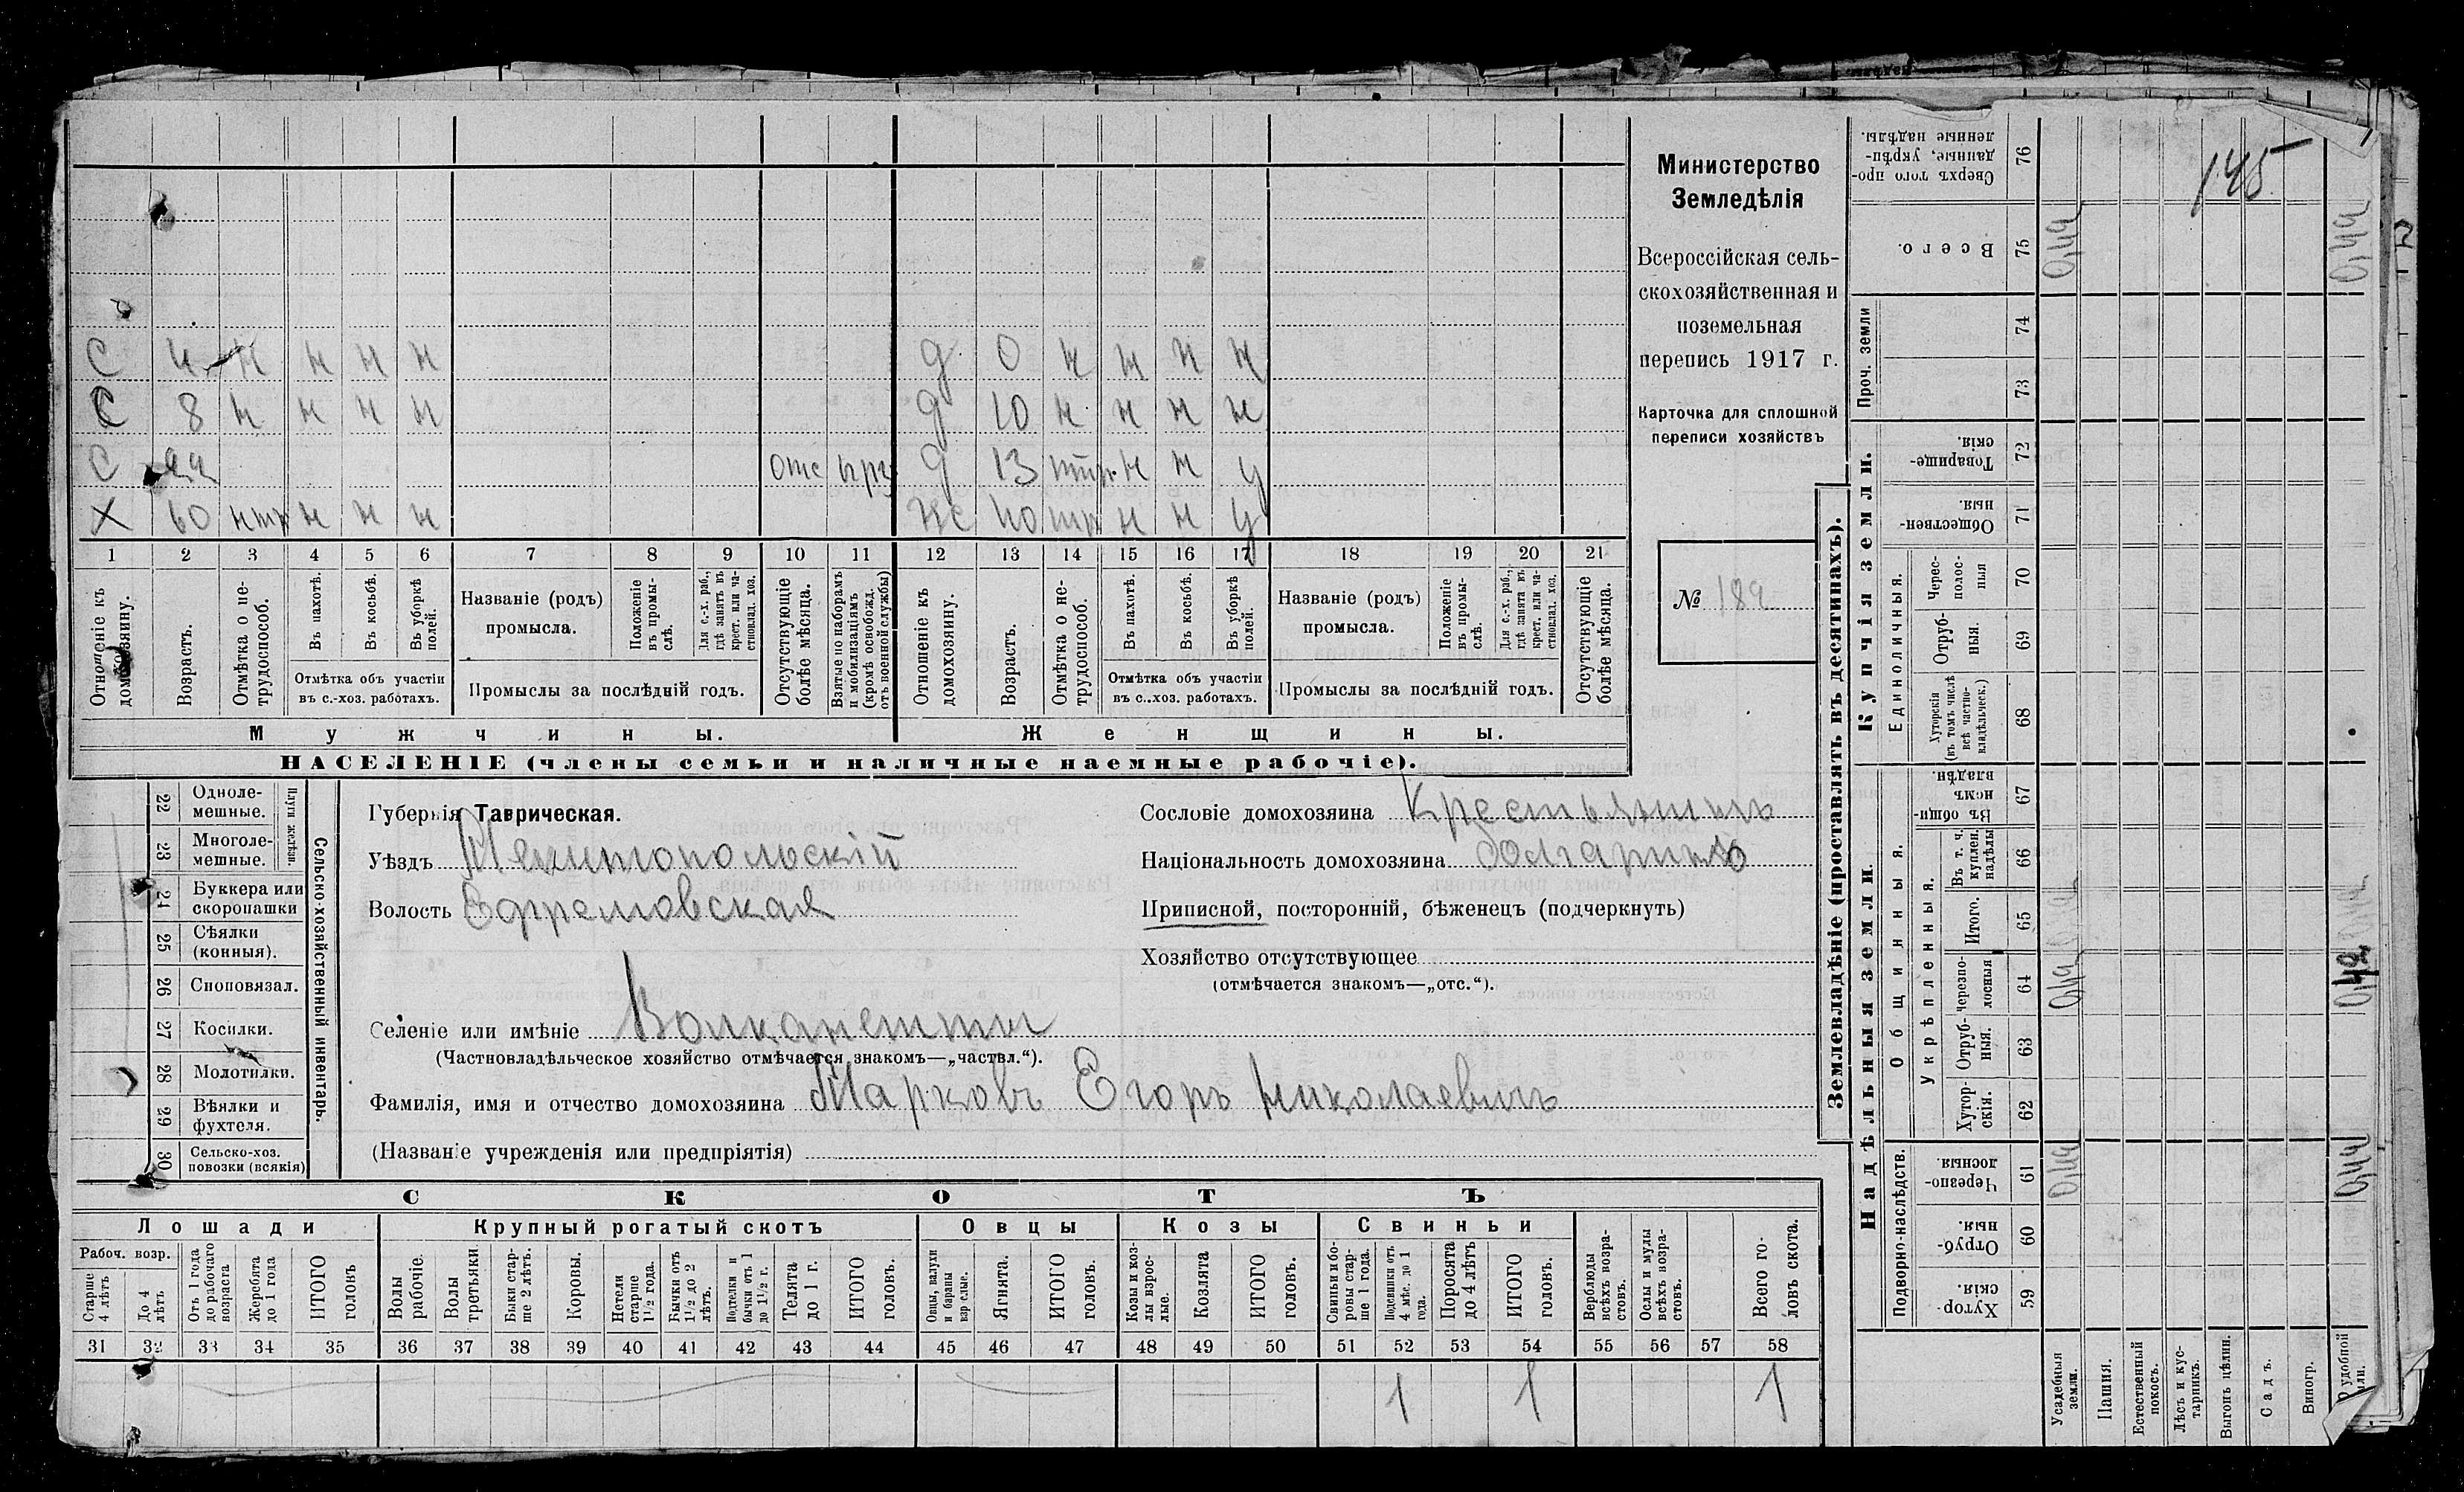 145
С 4 н н н н д 0 н н н н
С 8 н н н н д 10 н н н н
С отс д 13 н н у
Х 60 нтр н н н 40 н н у
1 2 3 4 5 6 7 8 9 10 11 12 13 14 15 16 17 18 19 20 21
Отношеніе къ домохозяину.
Возрастъ.
Отмѣтка о нетрудоспособ.
Въ пахотѣ.
Въ косьбѣ.
Въ уборкѣ полей.
Отмѣтка объ участіи
въ с.-хоз. работахъ.
Названіе (родъ)
промысла.
Положеніе въ промыслѣ.
Для с.-х. раб., гдѣ занятъ въ крест. или частновлад. хоз.
Промыслы за послѣдній годъ.
Отсутствующіе болѣе мѣсяца.
Взятые по наборамъ и мобилизаціямъ (кромѣ освобожд. отъ военной службы)
Отношеніе къ домохозяину.
Возрастъ.
Отмѣтка о нетрудоспособ.
Въ пахотѣ.
Въ косьбѣ.
Въ уборкѣ полей.
Отмѣтка объ участіи
въ с..хоз. работахъ.
Названіе (родъ)
промысла.
Положеніе въ промыслѣ.
Для с.-х. раб., гдѣ занята въ крест. или частновлад. хоз.
Промыслы за послѣдній годъ.
Отсутствующіе болѣе мѣсяца.
Мужчины. Женщины.
НАСЕЛЕНІЕ (члены семьи и наличные наемные рабочіе).
Министерство
Земледѣлія
Всероссійская сель-
скохозяйственная и
поземельная
перепись 1917 г.
Карточка для сплошной
переписи хозяйствъ
№ 189
22 Одноле-
мешные.
23 Многоле-
мешные.
Плуги желѣзн.
24 Буккера или
скоропашки
25 Сѣялки
(конныя).
26 Сноповязал.
27 Косилки.
28 Молотилки.
29 Вѣялки и
фухтеля.
30 Сельско-хоз.
повозки (всякія)
Сельско-хозяйственный инвентарь.
Губернія Таврическая.
Уѣздъ Мелитопольскій
Волость Ефремовская
Селеніе или имѣніе Волканешты
(Частновладѣльческое хозяйство отмѣчается знакомъ—„частвл.“).
Фамилія, имя и отчество домохозяина Марковъ Егоръ Николаевичъ
(Названіе учрежденія или предпріятія)
Сословіе домохозяина Крестьянинъ
Національность домохозяина болгаринъ
Приписной, посторонній, бѣженецъ (подчеркнуть)
Хозяйство отсутствующее
(отмѣчается знакомъ—„отс.“).
СКОТЪ
Лошади Крупный рогатый скотъ Овцы Козы Свиньи
Рабоч. возр.
Старше 4 лѣтъ
До 4 лѣтъ
Отъ 1 года до рабочаго возраста
Жеребята до 1 года
ИТОГО головъ
Волы рабочіе.
Волы третьяки.
Быки старше 2 лѣтъ.
Коровы.
Нетели старше 1½ года.
Бычки отъ 1½ до 2 лѣтъ.
Подтелки и бычки отъ 1 до 1½ г.
Телята до 1 г.
ИТОГО головъ.
Овцы, валухи и бараны взрослые.
Ягнята.
ИТОГО головъ.
Козы и козлы взрослые.
Козлята
ИТОГО головъ.
Свиньи и боровы старше 1 года.
Подсвинки отъ 4 мѣс. до 1 года.
Поросята до 4 лѣтъ
ИТОГО головъ.
Верблюды всѣхъ возрастовъ.
Ослы и мулы всѣхъ возрастовъ.
Всего головъ скота.
31 32 33 34 35 36 37 38 39 40 41 42 43 44 45 46 47 48 49 50 51 52 53 54 55 56 57 58
1 1 1
Землевладѣніе (проставлять въ десятинахъ).
Купчія земли.
Надѣльныя земли.
Сверхъ того проданные, укрѣпленные надѣлы. 76
Всего. 75
Проч. земли 74 73
Товарищескія. 72
Общественныя 71
Единоличныя.
Чересполосныя 70
Отрубныя. 69
Хуторскія (въ томъ числѣ всѣ частновладѣльческ.) 68
Общинныя.
Въ общинномъ владѣн. 67
Укрѣпленныя.
Въ т. ч. куплен. надѣлы 66
Итого. 65
Черезполосныя 64
Отрубныя. 63
Хуторскія. 62
Подворно-наслѣдств.
Черезполосныя. 61
Отрубныя. 60
Хуторскія. 59
Усадебныя земли.
Пашня.
Естественный покосъ.
Лѣсъ и кустарникъ.
Выгонъ цѣлин.
Садъ.
Виногр.
удобной